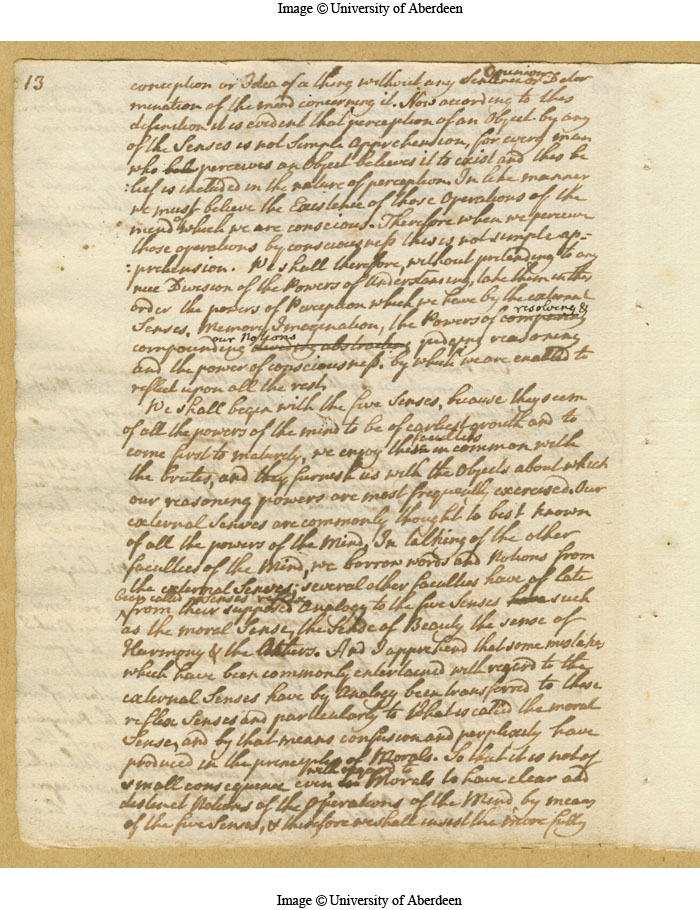 Image © University of Aberdeen
13
Opinion
conception or Idea of a thing without any Sentence or Deter
mination of the mind concerning it. Now according to this
definition it is evident that perception of an Object by any
of the Senses is not Simple Apprehension, for every man
who perceives an Object believes it to exist and this be
:lief is included in the nature of perception. In like manner
we must believe the Existence of those Operations of the
mind of which we are conscious. Therefore when we perceive
those operations by consciousness this is not simple ap-
:prehension. We shall therefore, without pretending to any
nice Division of the Powers of Understanding, take them in this
order the powers of Perception which we have by the external
resolving &
Senses, Memory, Imagination, the Powers of comparing
our Notions
compounding dividing abstracting judging reasoning
and the power of consciousness. by which we are enabled to
reflect upon all the rest.
We shall begin with the five Senses, because they seem
of all the powers of the mind to be of earliest growth and to
faculties
come first to maturity, we enjoy these in common with
the brutes, and they furnish us with the Objects about which
our reasoning powers are most frequently exercised. Our
external Senses are commonly thought to best known
of all the powers of the Mind, In talking of the other
faculties of the Mind, we borrow words and Notions from
the external Senses; several other faculties have of late
been called Senses
from their supposed Analogy to the five Senses have such
as the moral Sense, the Sense of Beauty the sense of
Harmony & the others. And I apprehend that some mistakes
which have been commonly entertained with regard to the
external Senses have by Analogy been transferred to these
reflex Senses and particularly to What is called the moral
Sense, and by that means confusion and perplexity have
produced in the principles of Morals. So that it is not of
with regard to
small consequence even in Morals to have clear and
distinct Notions of the Operations of the Mind by means
of the five Senses, & therefore we shall insist the more fully
Image © University of Aberdeen